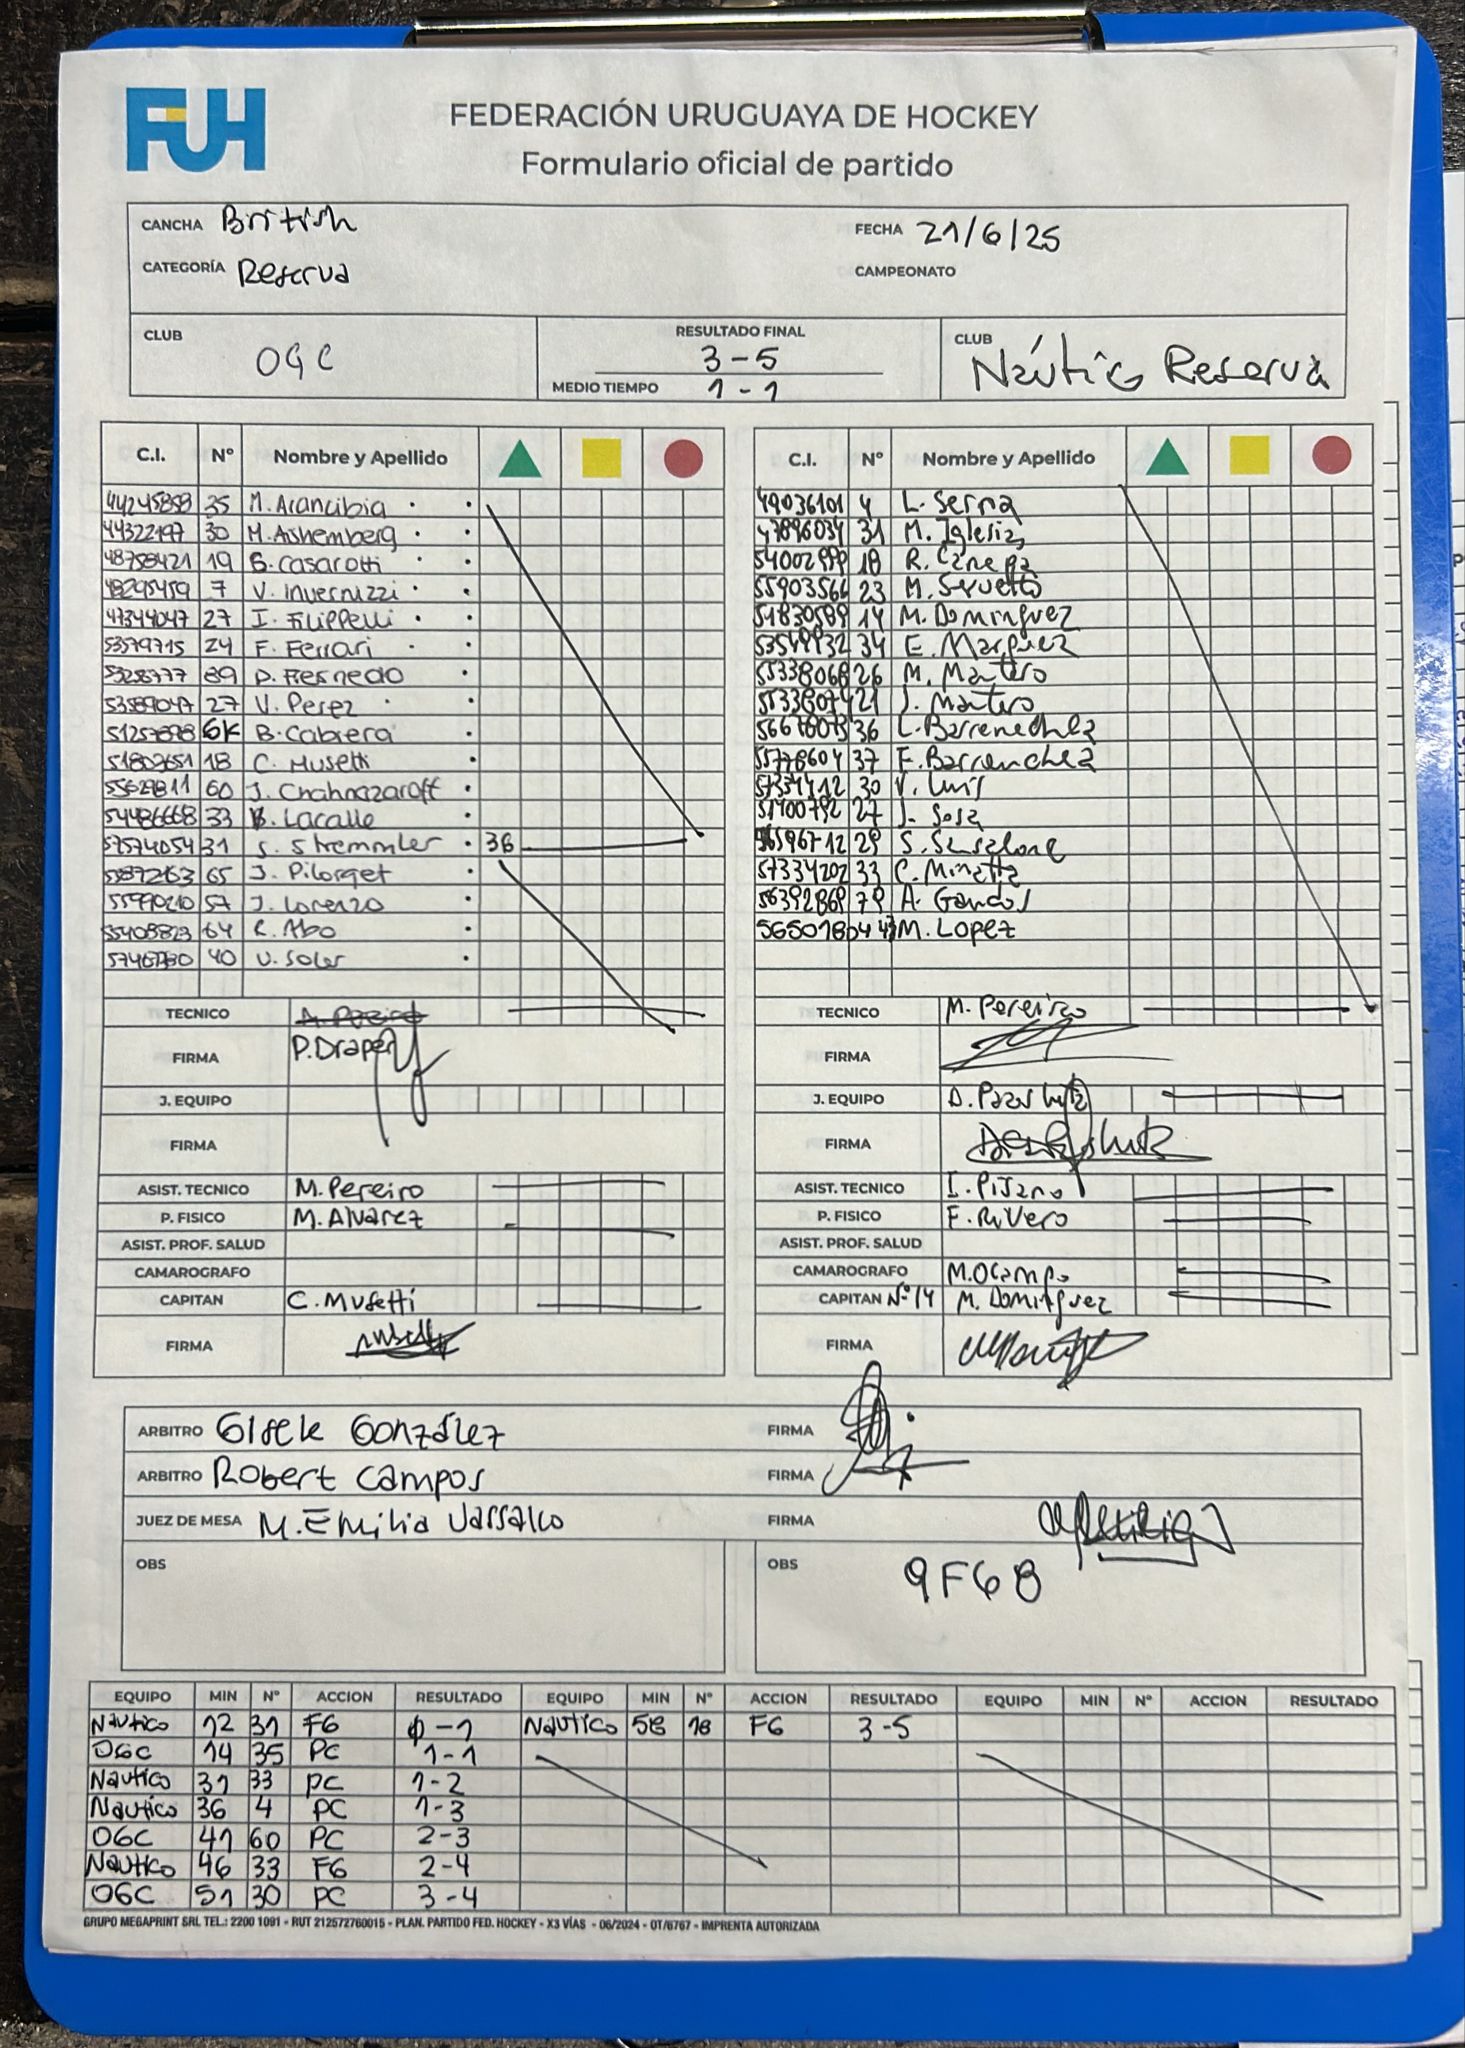 FUH
FEDERACIÓN URUGUAYA DE HOCKEY
Formulario oficial de partido
CANCHA British
FECHA 21/6/25
CATEGORÍA Reserva
CAMPEONATO
CLUB OGC
RESULTADO FINAL 3-5
MEDIO TIEMPO 1-1
CLUB Náutico Reserva
C.I. Nº Nombre y Apellido
44245858 35 M. Arancibia
44322197 30 M. Aishemberg
48758421 19 B. Casarotti
48295459 7 V. Invernizzi
47344047 27 I. Filippelli
53579715 24 F. Ferrari
5328777 89 D. Fresnedo
53589047 27 V. Perez
51257898 GK B. Cabrera
51802651 18 C. Musetti
55629811 60 J. Chahnazaroff
54486668 33 B. Lacalle
57574054 31 S. Stremmler 36
5587263 65 J. Pilorget
55990210 57 J. Lorenzo
55408823 64 R. Abo
57467730 40 V. Soler
TECNICO
FIRMA P. Draper
J. EQUIPO
FIRMA
ASIST. TECNICO M. Pereiro
P. FISICO M. Alvarez
ASIST. PROF. SALUD
CAMAROGRAFO
CAPITAN C. Musetti
FIRMA
C.I. Nº Nombre y Apellido
49036101 4 L. Serna
47896034 31 M. Iglesias
54002999 18 R. Canepa
55903566 23 M. Servetto
51830589 14 M. Dominguez
53549932 34 E. Marquez
55338068 26 M. Mattero
55338074 21 J. Mattero
56678073 36 L. Barrenechea
55778604 37 F. Barrenechea
57334412 30 V. Luis
51400792 27 J. Sosa
56596712 29 S. Sansalone
57334202 33 C. Minetta
56392869 79 A. Gandos
56501804 43 M. Lopez
TECNICO M. Pereira
FIRMA
J. EQUIPO D. Pazos
FIRMA
ASIST. TECNICO I. Pisano
P. FISICO F. Rivero
ASIST. PROF. SALUD
CAMAROGRAFO M. Ocampo
CAPITAN Nº 14 M. Dominguez
FIRMA
ARBITRO Gisele González FIRMA
ARBITRO Robert Campos FIRMA
JUEZ DE MESA M. Emilia Vassallo FIRMA
OBS
OBS 9F68
EQUIPO MIN Nº ACCION RESULTADO EQUIPO MIN Nº ACCION RESULTADO EQUIPO MIN Nº ACCION RESULTADO
Náutico 12 31 FG 0-1 Náutico 58 18 FG 3-5
OGC 14 35 PC 1-1
Náutico 31 33 PC 1-2
Náutico 36 4 PC 1-3
OGC 41 60 PC 2-3
Náutico 46 33 FG 2-4
OGC 51 30 PC 3-4
GRUPO MEGAPRINT SRL TEL.: 2200 1091 - RUT 212572760015 - PLAN. PARTIDO FED. HOCKEY - X3 VÍAS - 06/2024 - OT/6767 - IMPRENTA AUTORIZADA